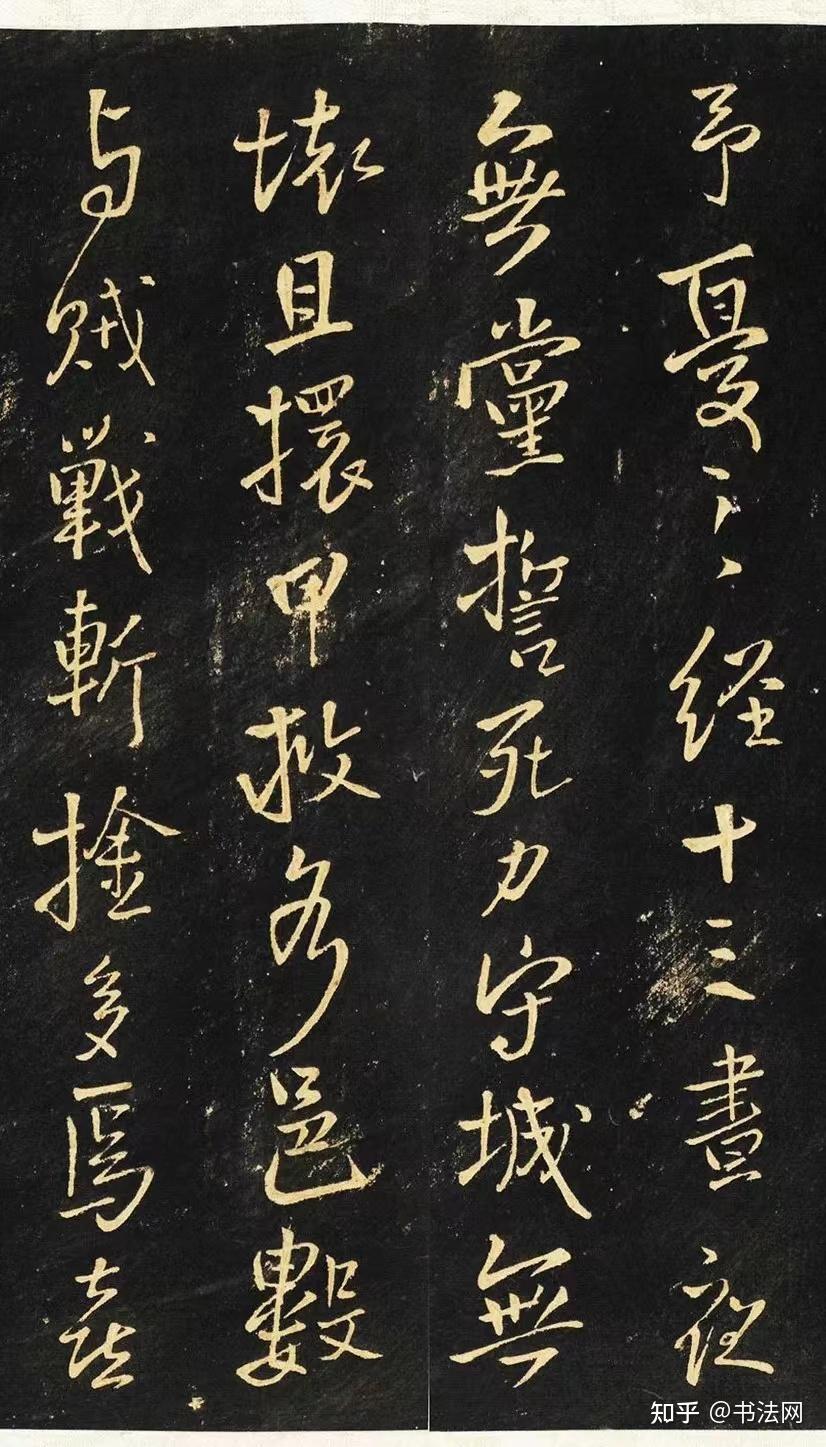 予憂〻經十三晝夜
無黨誓死力守城無
壞且擐甲救各邑數
与賊戰斬捦多焉喜
知乎 @书法网